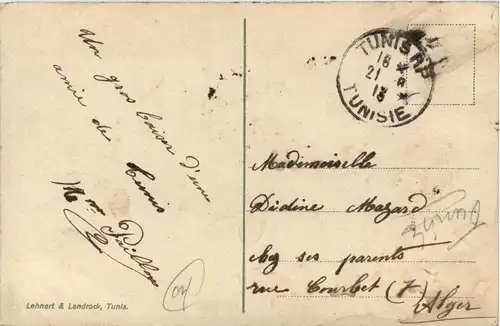 Un gros baiser d'une
amie de Tunis
Mme
Lehnert & Landrock, Tunis.
TUNIS RP
18
21
13
TUNISIE
Mademoiselle
Didine Mazard
chez ses parents
rue Courbet (7)
Alger